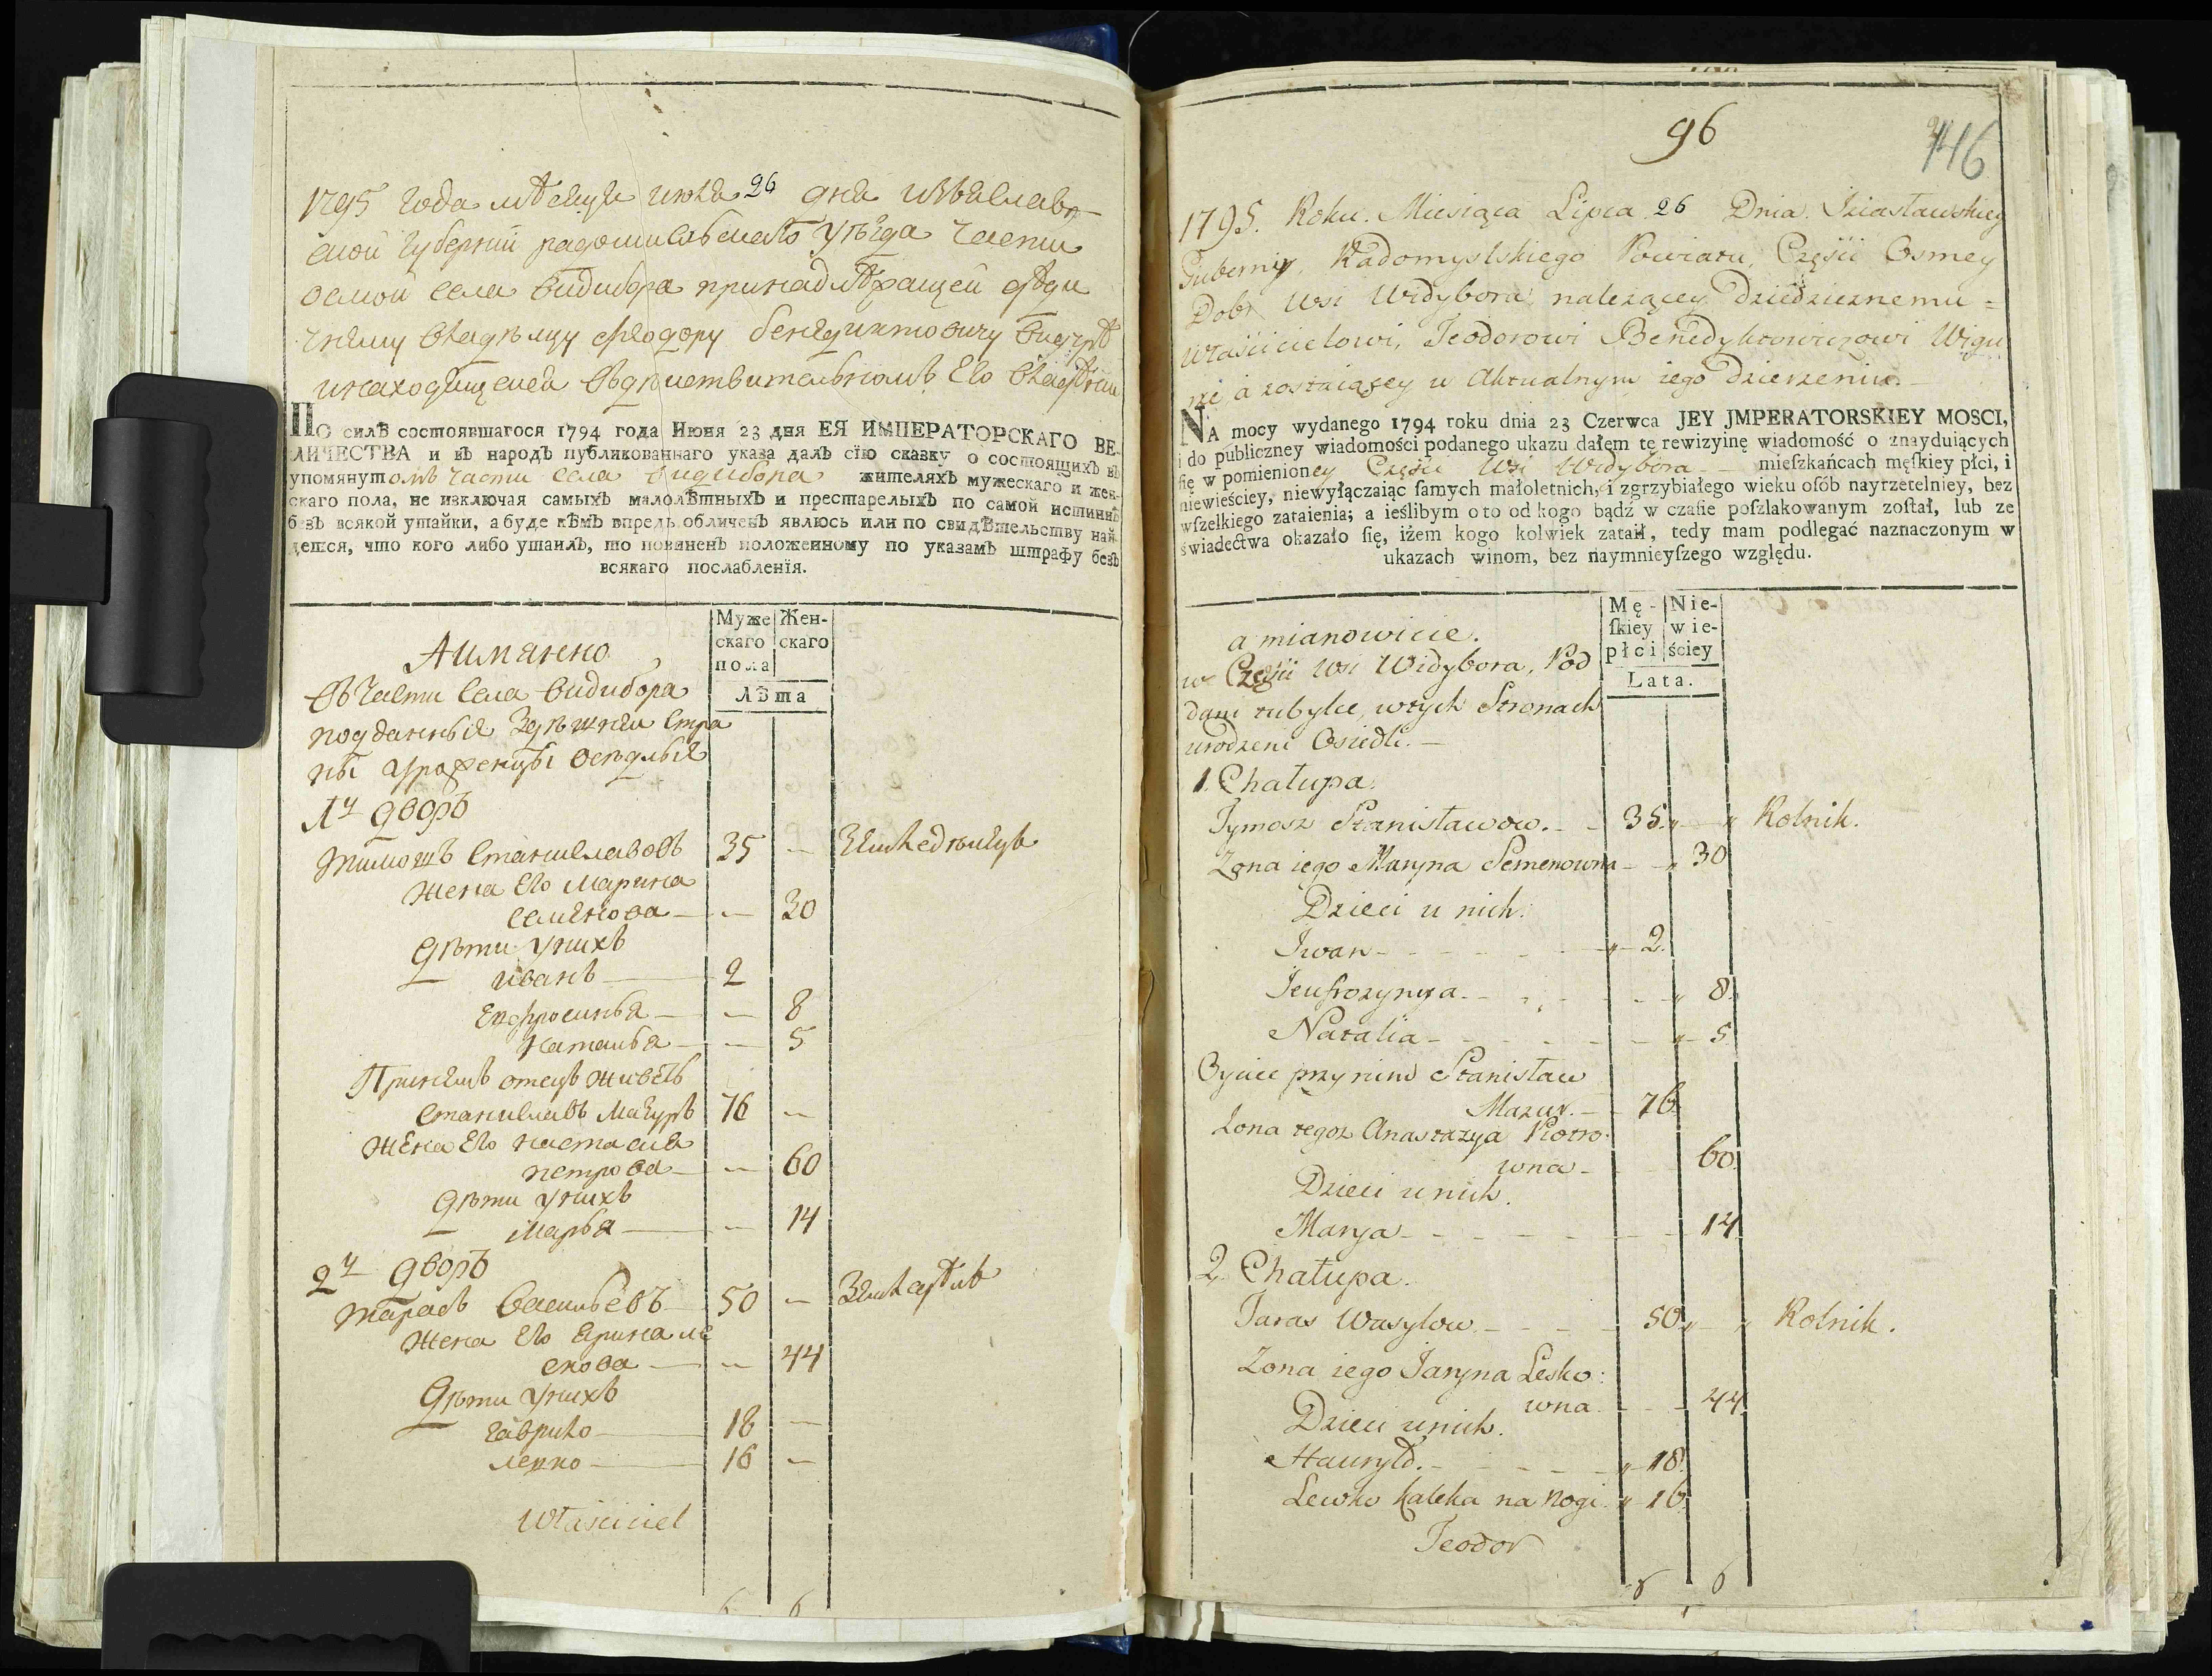 1795 года мѣсяца июля 26 дня изяслав
ской губернии радомисльскаго уѣзда части
осмой села видибора принадлѣжащей дѣди
чному владѣлцу Феодору бенедиктовичу
и находящейся вдѣиствительномъ Его владѣнии
ПО силѣ состоявшагося 1794 года Июня 23 дня ЕЯ ИМПЕРАТОРСКАГО ВЕ-
ЛИЧЕСТВА и въ народъ публикованнаго указа далъ сїю сказку о состоящихъ въ
упомянутомъ части села видибора жителяхъ мужескаго и жен-
скаго пола, не изключая самыхъ малолѣтныхъ и престарелыхъ по самой истиннѣ
безъ всякой утайки, а буде кѣмъ впредь обличенъ явлюсь или по свидѣтельству най-
дется, что кого либо утаилъ, то повиненъ положенному по указамъ штрафу безъ
всякаго послабленїя.
Муже Жен-
скаго скаго
пола
Лѣта
Аимянно
Въ части села видибора
подданныя здѣшнеи стра
ны уроженцы оседлыя
1й дворъ
тимошъ станиславовъ 35 —
жена Его марина
семенова — — 30
дѣти у нихъ
иванъ — 2
Ефросинья — — 8
наталья — — 5
При немъ отецъ живетъ
станиславъ мазуръ 76 —
жена Его настасия
петрова — — 60
дѣти у нихъ
марья — — 14
2й дворъ
тарасъ васильевъ 50 —
жена Его Ярина ле
скова — — 44
дѣти у нихъ
гаврило — 18 —
левко — 16 —
Właściciel
6 6
96
146
1795. Roku. Miesiąca Lipca 26 Dnia. Iziasławskiey
Gubernij, Radomyslskiego Powiatu, Częsii Osmey
Dobr Wsi Widybora, należącey Dziedzicznemu =
właścicielowi, Teodorowi Benedyktowiczowi Wigu
rze, a zostaiącey w Aktualnym iego Dzierzeniu. —
NA mocy wydanego 1794 roku dnia 23 Czerwca JEY JMPERATORSKIEY MOSCI,
i do publiczney wiadomości podanego ukazu dałem tę rewizyinę wiadomość o znayduiących
się w pomienioney Częsii Wsi Widybora — mieſzkańcach męſkiey płci, i
niewieściey, niewyłączaiąc ſamych małoletnich, i zgrzybiałego wieku oſób nayrzetelniey, bez
wſzelkiego zataienia; a ieślibym o to od kogo bądź w czaſie poſzlakowanym zoſtał, lub ze
świadectwa okazało ſię, iżem kogo kolwiek zataił, tedy mam podlegać naznaczonym w
ukazach winom, bez naymnieyſzego względu.
Mę- Nie-
ſkiey wie-
płci ściey
Lata.
a mianowicie.
w Częsii Wsi Widybora, Pod
dani tubylce, w tych Stronach
urodzeni Osiedli. —
1. Chałupa.
Tymosz Stanisławow. — 35. „ — „ Rolnik.
Zona iego Maryna Semenowna — „ 30
Dzieci u nich.
Iwan — „ 2.
Ieufrozynya. — „ 8.
Natalia — „ 5.
Oyciec przy nim Stanisław
Mazur. — 76.
Zona tegoz Anastazya Piotro-
wna — 60.
Dzieci u nich.
Marya — 14.
2. Chałupa.
Taras Wasylow. — 50. „ — „ Rolnik.
Zona iego Jaryna Lesko:
wna. — 44.
Dzieci u nich.
Hawryło. — „ 18.
Lewko kaleka na Nogi. „ 16.
Teodor
6 6